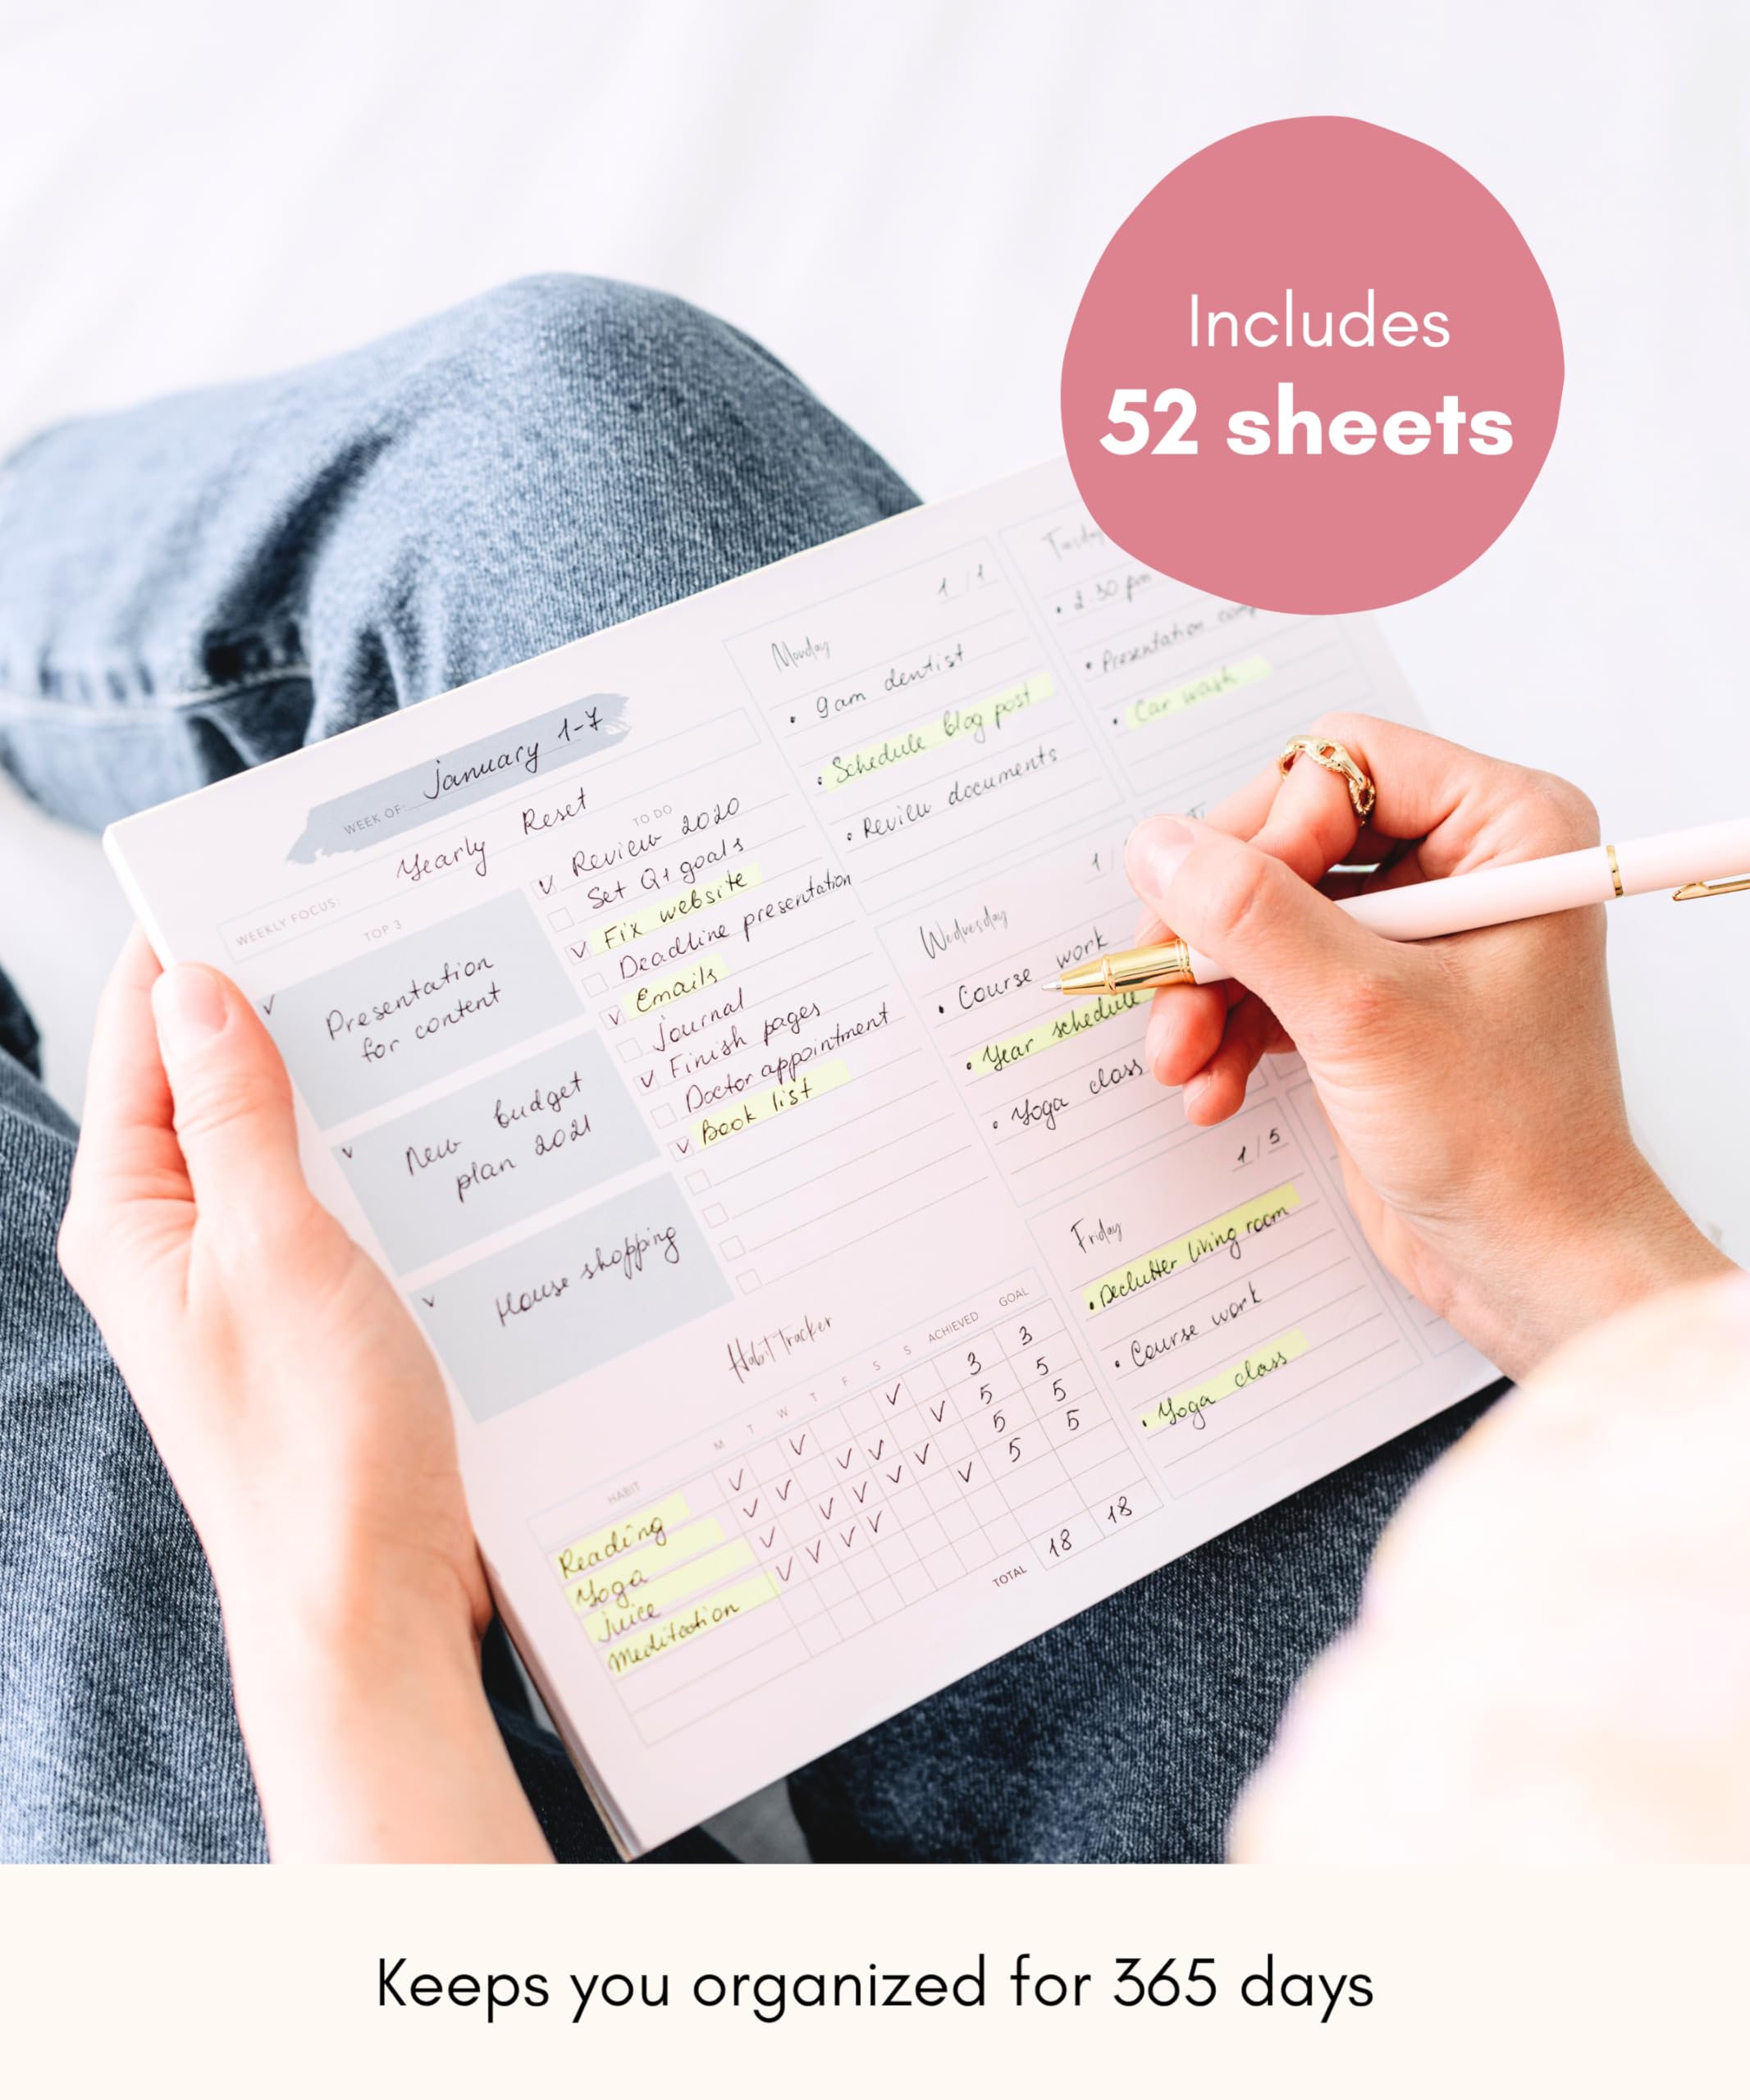 Includes
52 sheets
WEEK OF: January 1-7
WEEKLY FOCUS: Yearly Reset
TOP 3
v Presentation
for content
v New budget
plan 2021
v House shopping
TO DO
v Review 2020
Set Q1 goals
v Fix website
Deadline presentation
v Emails
Journal
v Finish pages
Doctor appointment
v Book list
Habit Tracker
HABIT M T W T F S S ACHIEVED GOAL
Reading v v v 3 3
Yoga v v v v v 5 5
Juice v v v v v 5 5
Meditation v v v v v 5 5
TOTAL 18 18
Monday 1/1
• 9am dentist
• Schedule blog post
• Review documents
Tuesday
• 2 30 pm
• Presentation
• Car wash
Wednesday 1/
• Course work
• Year schedule
• Yoga class
Friday 1/5
• Declutter living room
• Course work
• Yoga class
Keeps you organized for 365 days